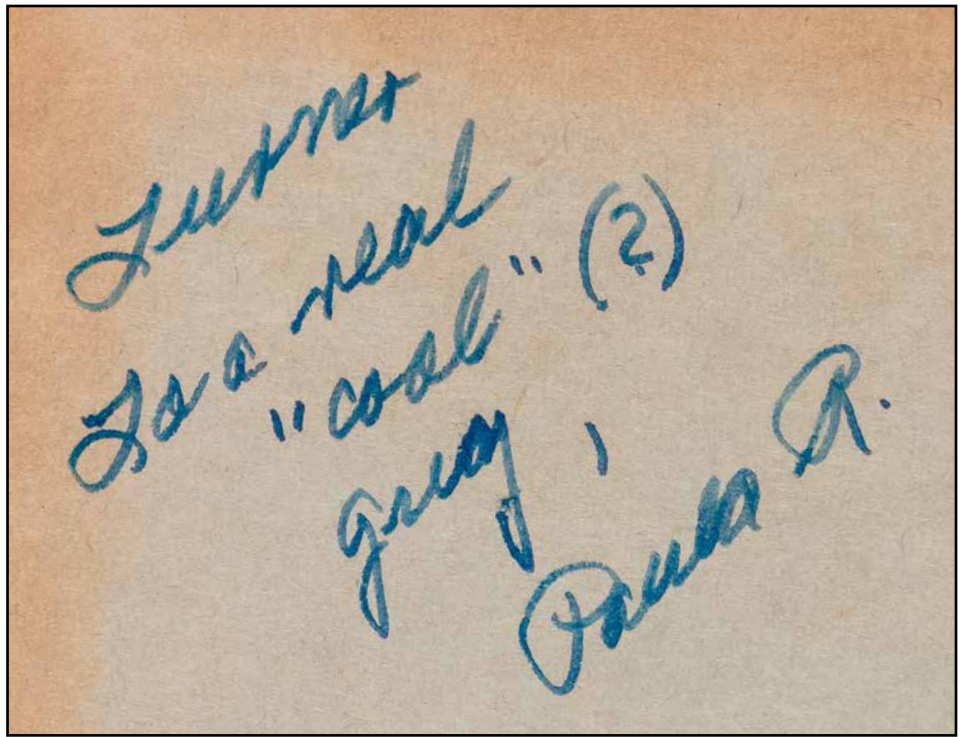 Turner
To a real
"cool" (?)
guy,
Paula R.